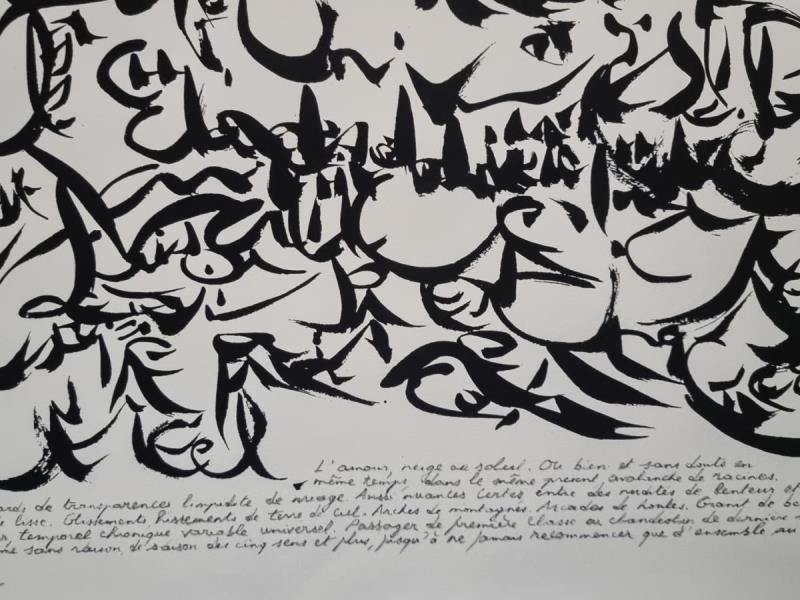 L'amour, neige au soleil. Ou bien et sans doute en
même temps, dans le même present, avalanche de racines.
ards de transparences limpidité de nuage. Aussi nuances certes, entre des nudités de lenteur
lisse. Glissements, hissements de terre de ciel. Arches de montagnes. Arcades de hontes. Granit de
temporel chronique variable universel. Passager de première classe ou clandestin de dernière
me sans raison, de saison des cinq sens et plus, jusqu'à ne jamais recommencer que d'ensemble au